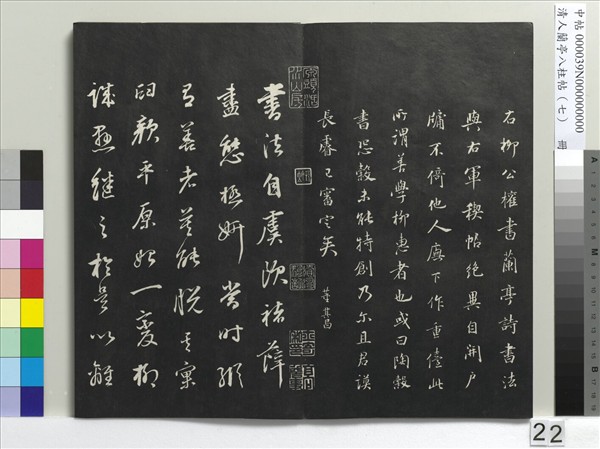 右柳公權書蘭亭詩書法
與右軍禊帖絕異自開戶
牖不倚他人廡下作重儓此
所謂善學柳惠者也或曰陶穀
書恐穀未能特創乃尔且君謨
長睿已審定矣
董其昌
書法自虞歐褚薛
盡態極妍當時縱
有善者莫能脫其窠
臼顏平原始一變柳
誠懸繼之於是以離
中帖 000039N000000000
清人蘭亭八柱帖（七）
冊
22